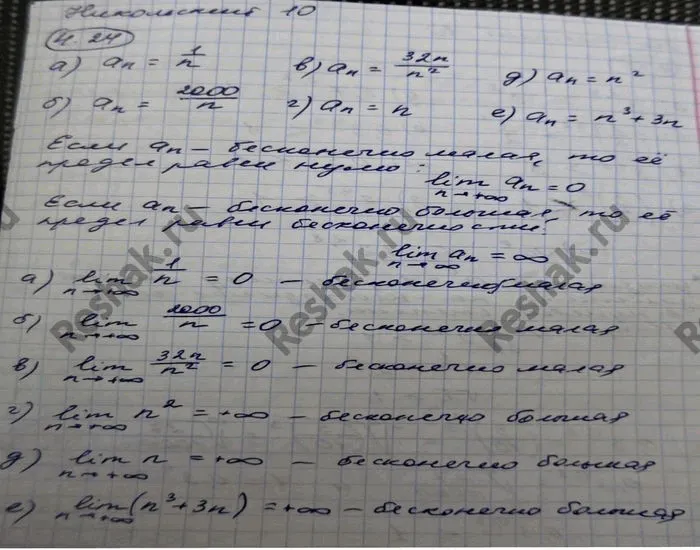 Никольский 10
4.24
а) aₙ = 1/n   в) aₙ = 32n/n²   д) aₙ = n²
б) aₙ = 2000/n   г) aₙ = n   е) aₙ = n³ + 3n
Если aₙ – бесконечно малая, то её
предел равен нулю: lim n→+∞ aₙ = 0
Если aₙ – бесконечно большая, то её
предел равен бесконечности:
lim n→∞ aₙ = ∞
а) lim n→+∞ 1/n = 0 – бесконечно малая
б) lim n→+∞ 2000/n = 0 – бесконечно малая
в) lim n→+∞ 32n/n² = 0 – бесконечно малая
г) lim n→+∞ n² = +∞ – бесконечно большая
д) lim n→+∞ n = +∞ – бесконечно большая
е) lim n→+∞ (n³ + 3n) = +∞ – бесконечно большая
Reshak.ru
Reshak.ru
Reshak.ru